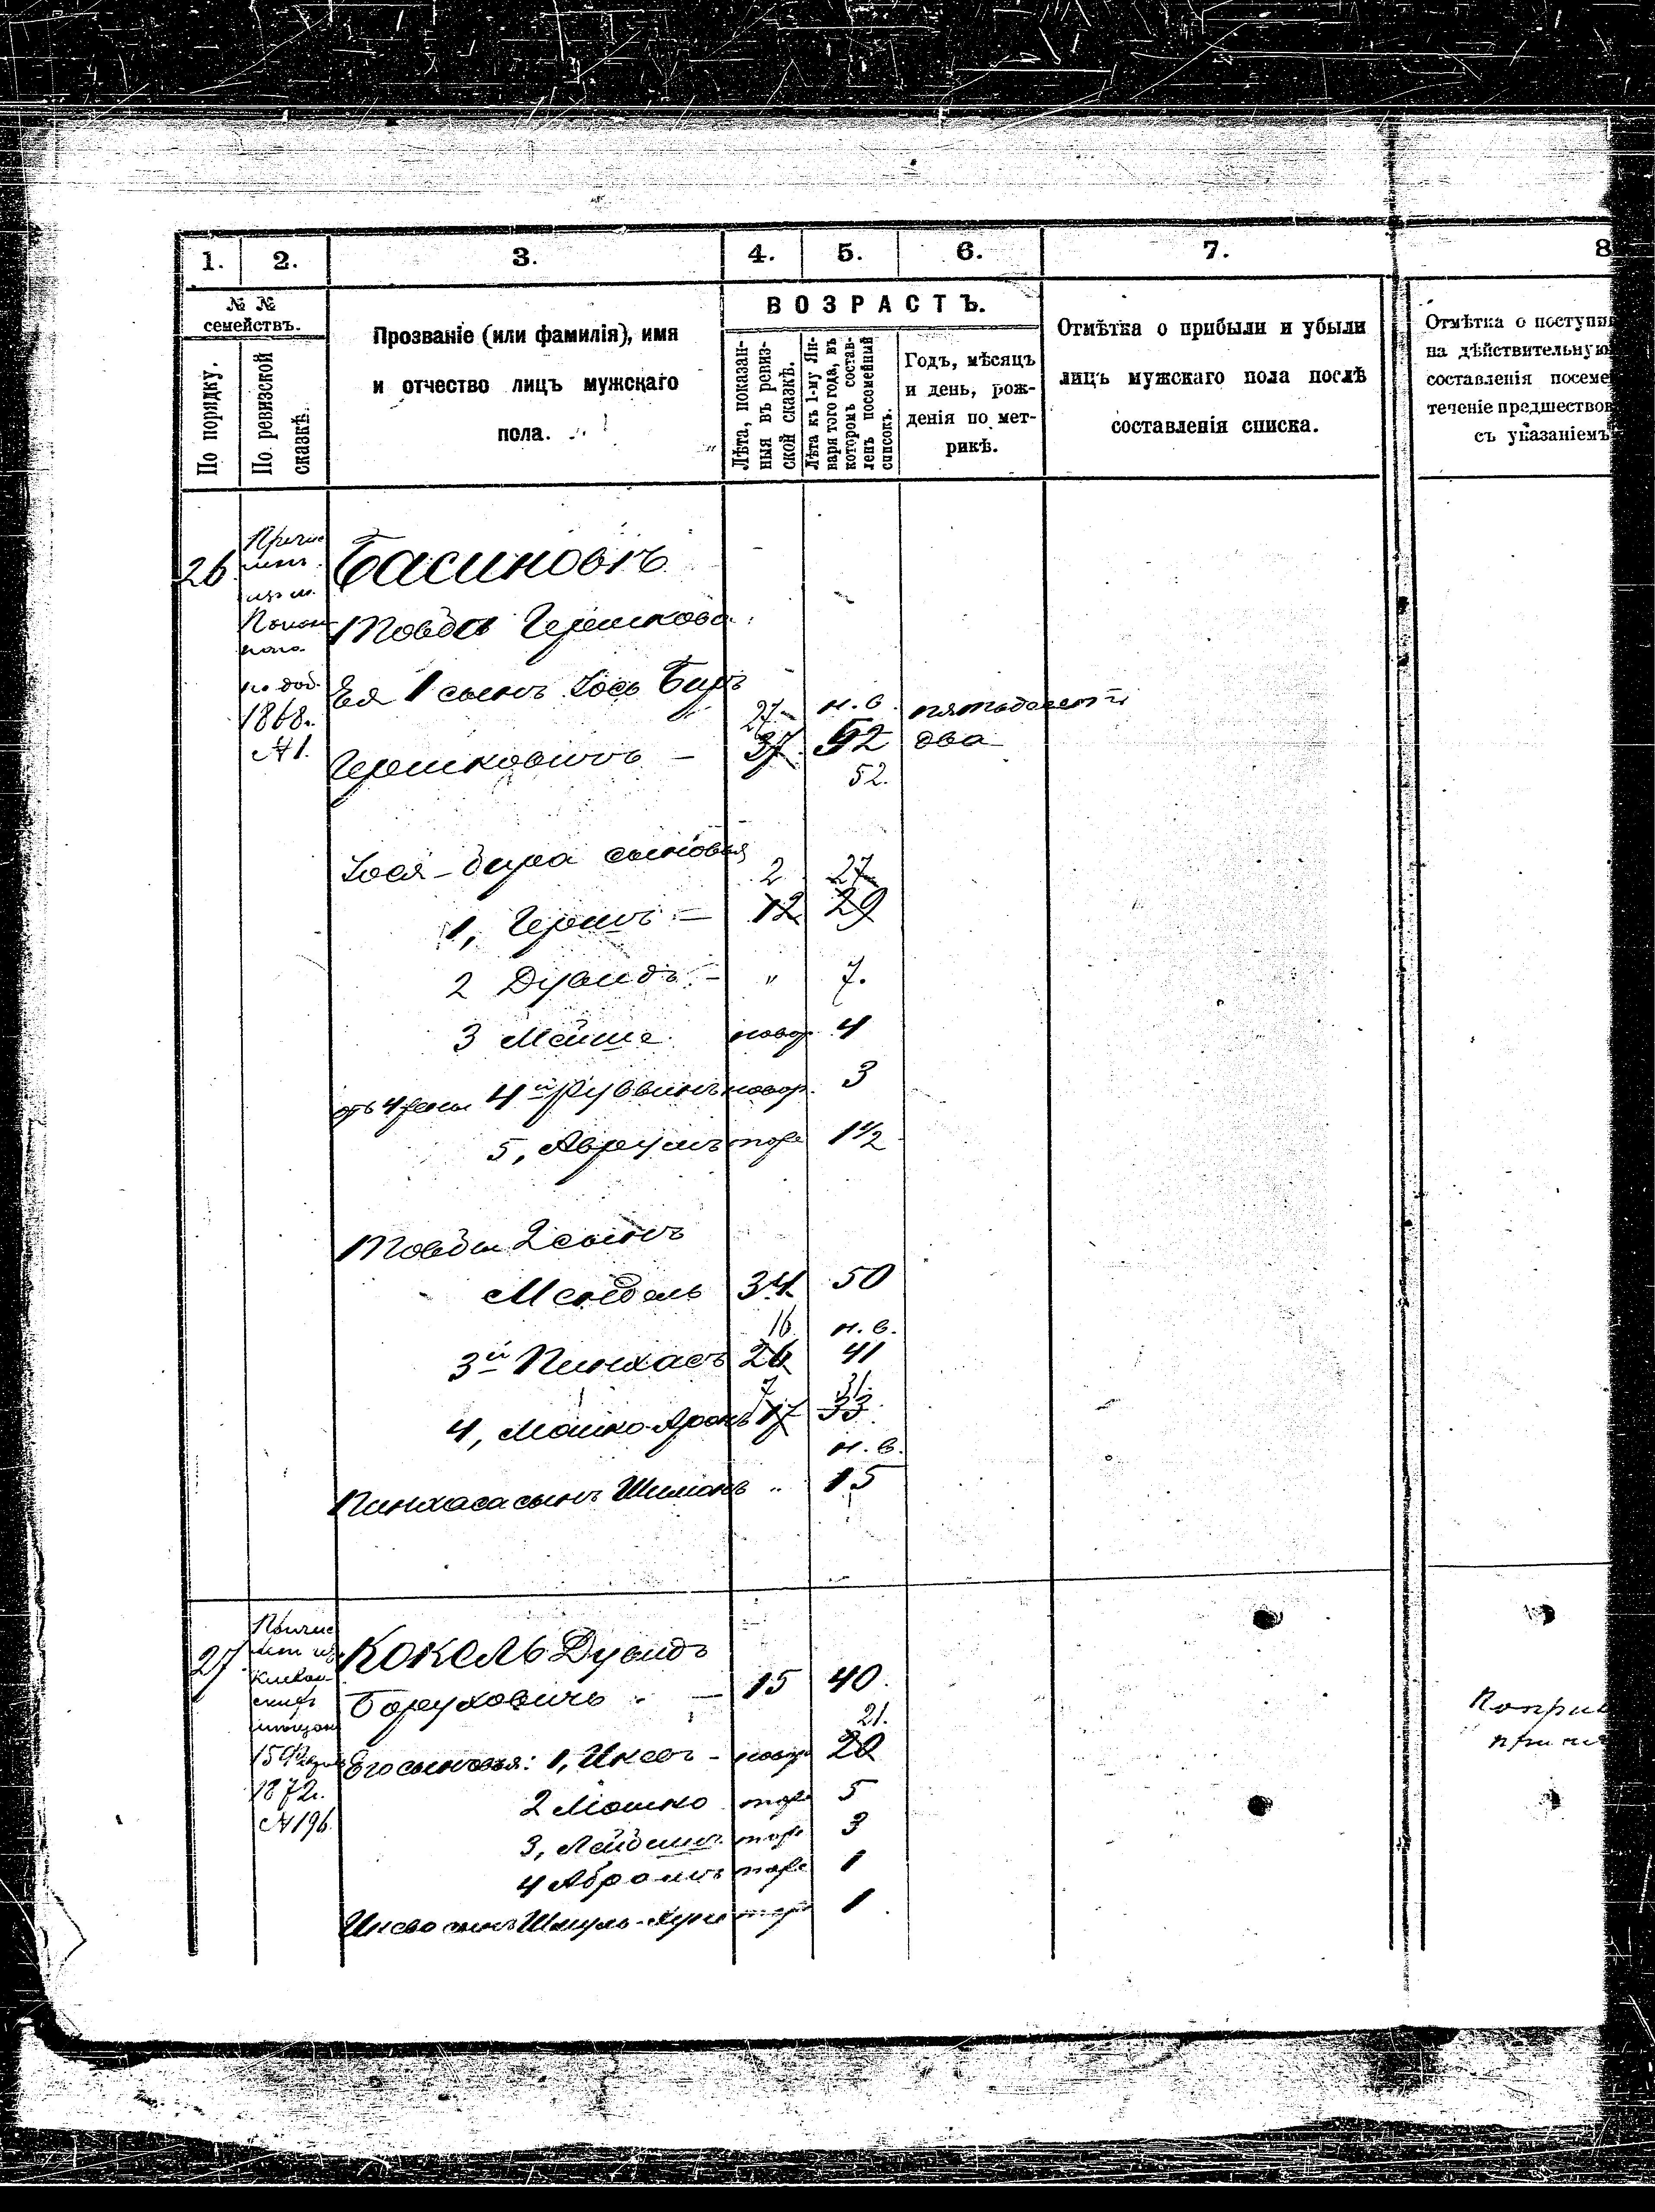 1. 2. 3. 4. 5. 6. 7. 8
№ №
семействъ.
По порядку.
По ревизской
сказкѣ.
Прозваніе (или фамилія), имя
и отчество лицъ мужскаго
пола.
ВОЗРАСТЪ.
Лѣта, показан-
ныя въ ревиз-
ской сказкѣ.
Лѣта къ 1-му Ян-
варя того года, въ
которомъ состав-
ленъ посемейный
списокъ.
Годъ, мѣсяцъ
и день, рож-
денія по мет-
рикѣ.
Отмѣтка о прибыли и убыли
лицъ мужскаго пола послѣ
составленія списка.
Отмѣтка о поступи
на дѣйствительную
составленія посеме
теченіе предшествов
съ указаніемъ
26
1868.
№ 1.
Басиновъ
Товба Гершкова
Ея 1 сынъ Іось Беръ
27 н. в. пятьдесятъ
Гершковичъ — 37 52 два
52.
Іося-бера сыновья 2 27
1, Гершъ — 12 29
2 Дувидъ — " 7.
3 Мейше новор. 4
отъ 4 жены 4й Рувинъ новор. 3
5, Аврумъ тоже 1 1/2
Товбы 2 сынъ
Мендель 34 50
16 н. в.
3й Пинхасъ 26 41
7 31.
4, Мошко-Аронъ 17 33.
н. в.
Пинхаса сынъ Шимонъ " 15
27
1872.
№ 196
Кокель Дувидъ
Боруховичъ — 15 40.
21.
Его сыновья: 1, Ицко - новор 20
2 Мошко тоже 5
3, тоже 3
4 Абрамъ тоже 1
сынъ Шмуль- тоже 1